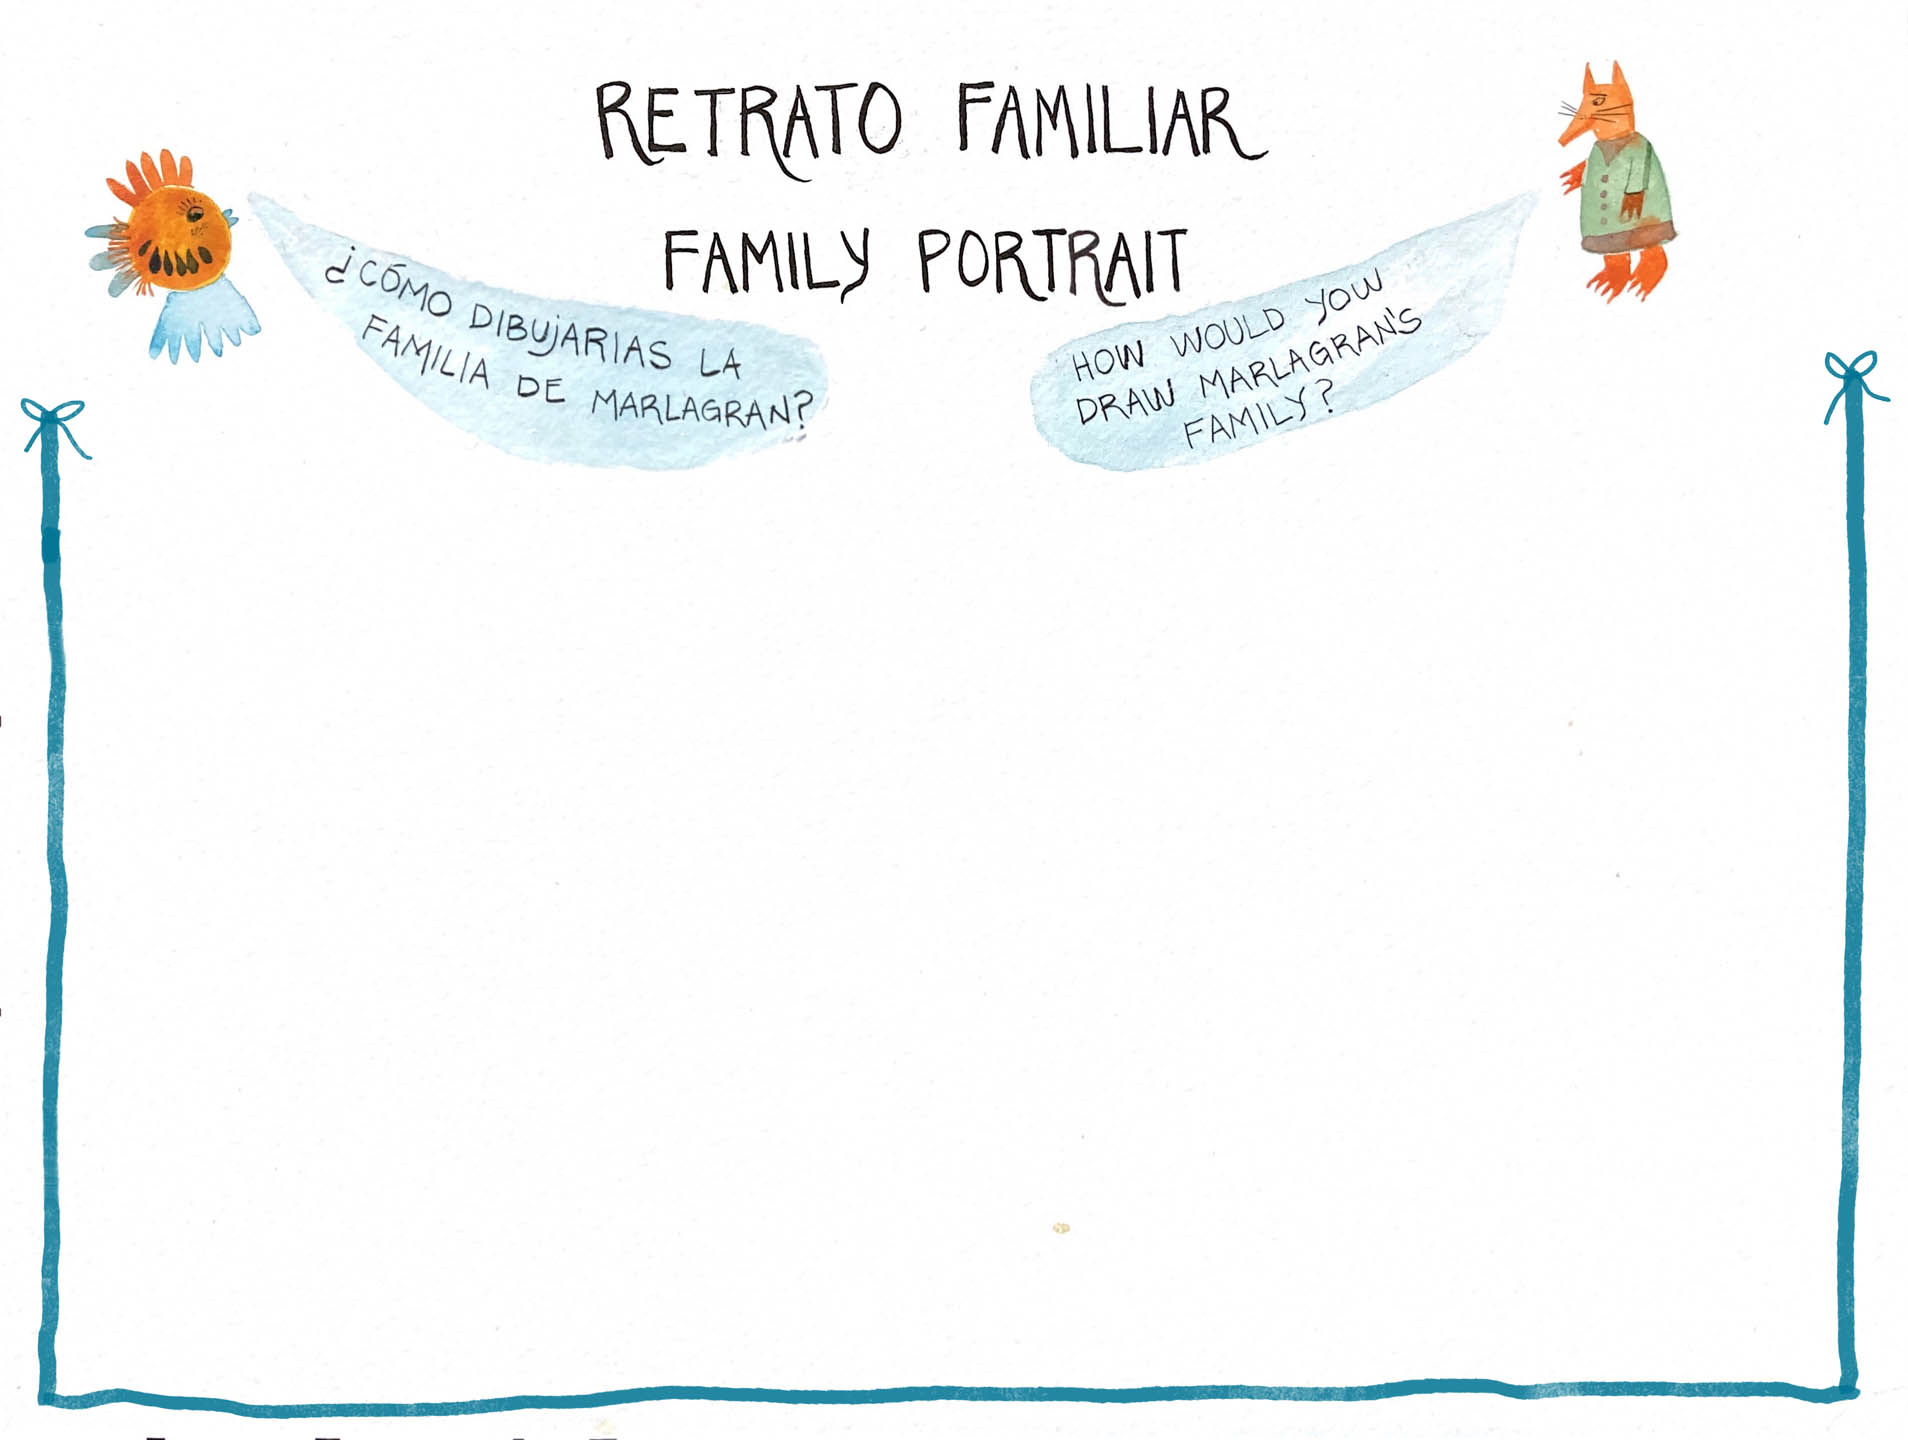 RETRATO FAMILIAR
FAMILY PORTRAIT
¿CÓMO DIBUJARIAS LA
FAMILIA DE MARLAGRAN?
HOW WOULD YOW
DRAW MARLAGRAN'S
FAMILY?